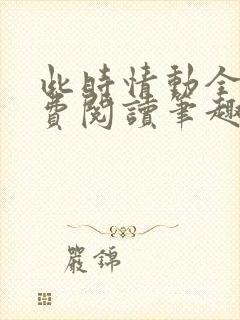 此時情動全
費閱讀筆趣
嚴錦